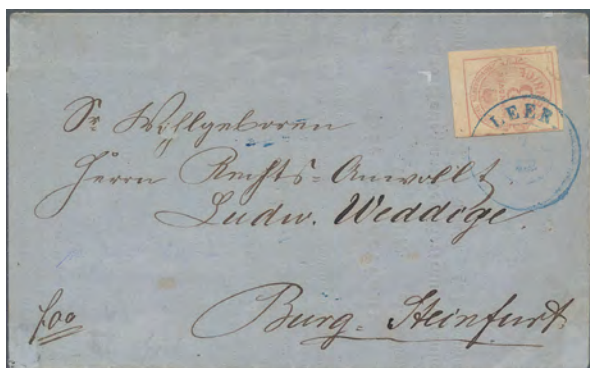 LEER
Sr Wohlgeboren
Herrn Rechts-Anwalt
Ludw. Weddige
Burg-Steinfurt